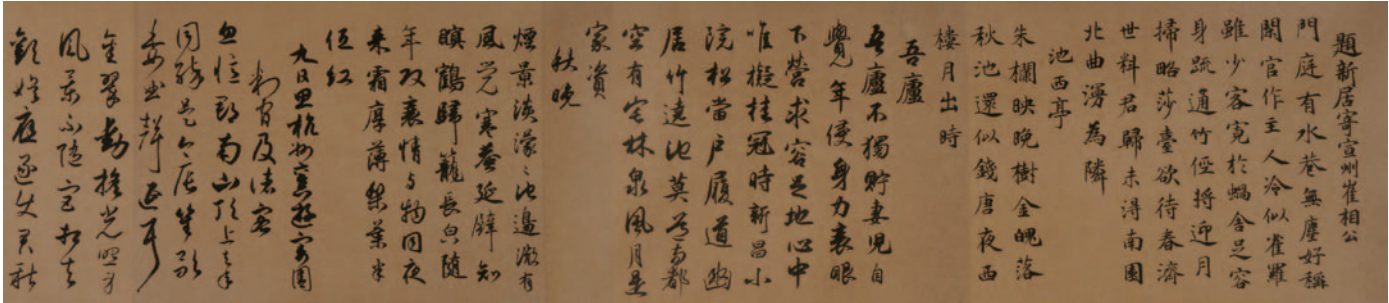 題新居寄宣州崔相公
門庭有水巷無塵好稱
閑官作主人冷似雀羅
雖少客寬於蝸舍足容
身疏通竹徑將迎月
掃略莎臺欲待春濟
世料君歸未得南園
北曲漫為隣
池西亭
朱欄映晚樹金魄落
秋池還似錢唐夜西
樓月出時
吾廬
吾廬不獨貯妻兒自
覺年侵身力衰眼
下營求容足地心中
唯擬桂冠時新昌小
院松當户履道幽
居竹遶池莫道兩都
空有宅林泉風月是
家資
秋晚
煙景淡濛々池邊微有
風覺寒蛩延壁知
暝鶴歸籠長皃隨
年改衰情与物同夜
来霜厚薄梨葉半
低紅
九日思杭州舊遊寄周
判官及諸客
忽憶郡南山頂上昔時
同醉是今辰笙歌
委曲聲延耳
金翠動搖光照身
風景不隨宮相去
歡娛應逐使君新